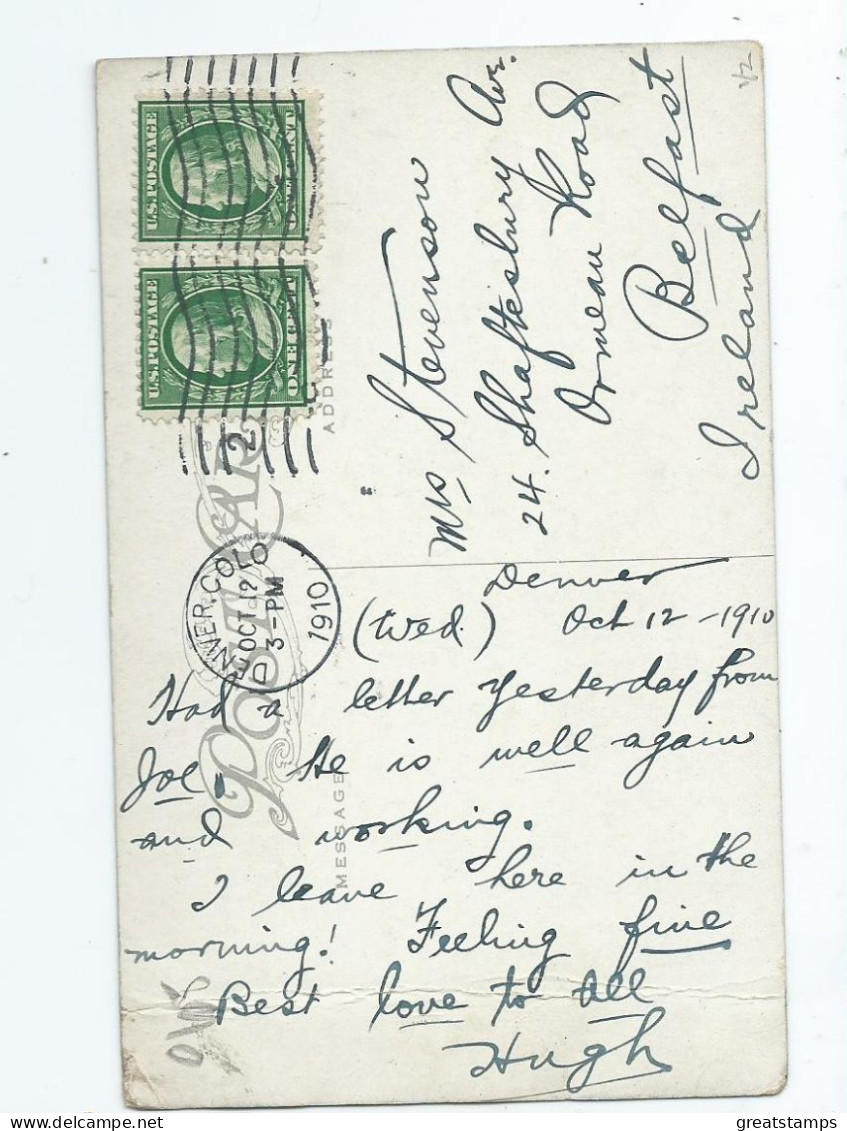 U.S. POSTAGE
ONE CENT
U.S. POSTAGE
ONE CENT
2
DENVER, COLO
OCT 12
3-PM
1910
POST CARD
ADDRESS
MESSAGE
Mrs Stevenson
24. Shaftesbury Ave.
Ormeau Road
Belfast
Ireland
Denver
(Wed.) Oct 12 - 1910
Had a letter yesterday from
Joe. He is well again
and working.
I leave here in the
morning! Feeling fine
Best love to all
Hugh
greatstamps